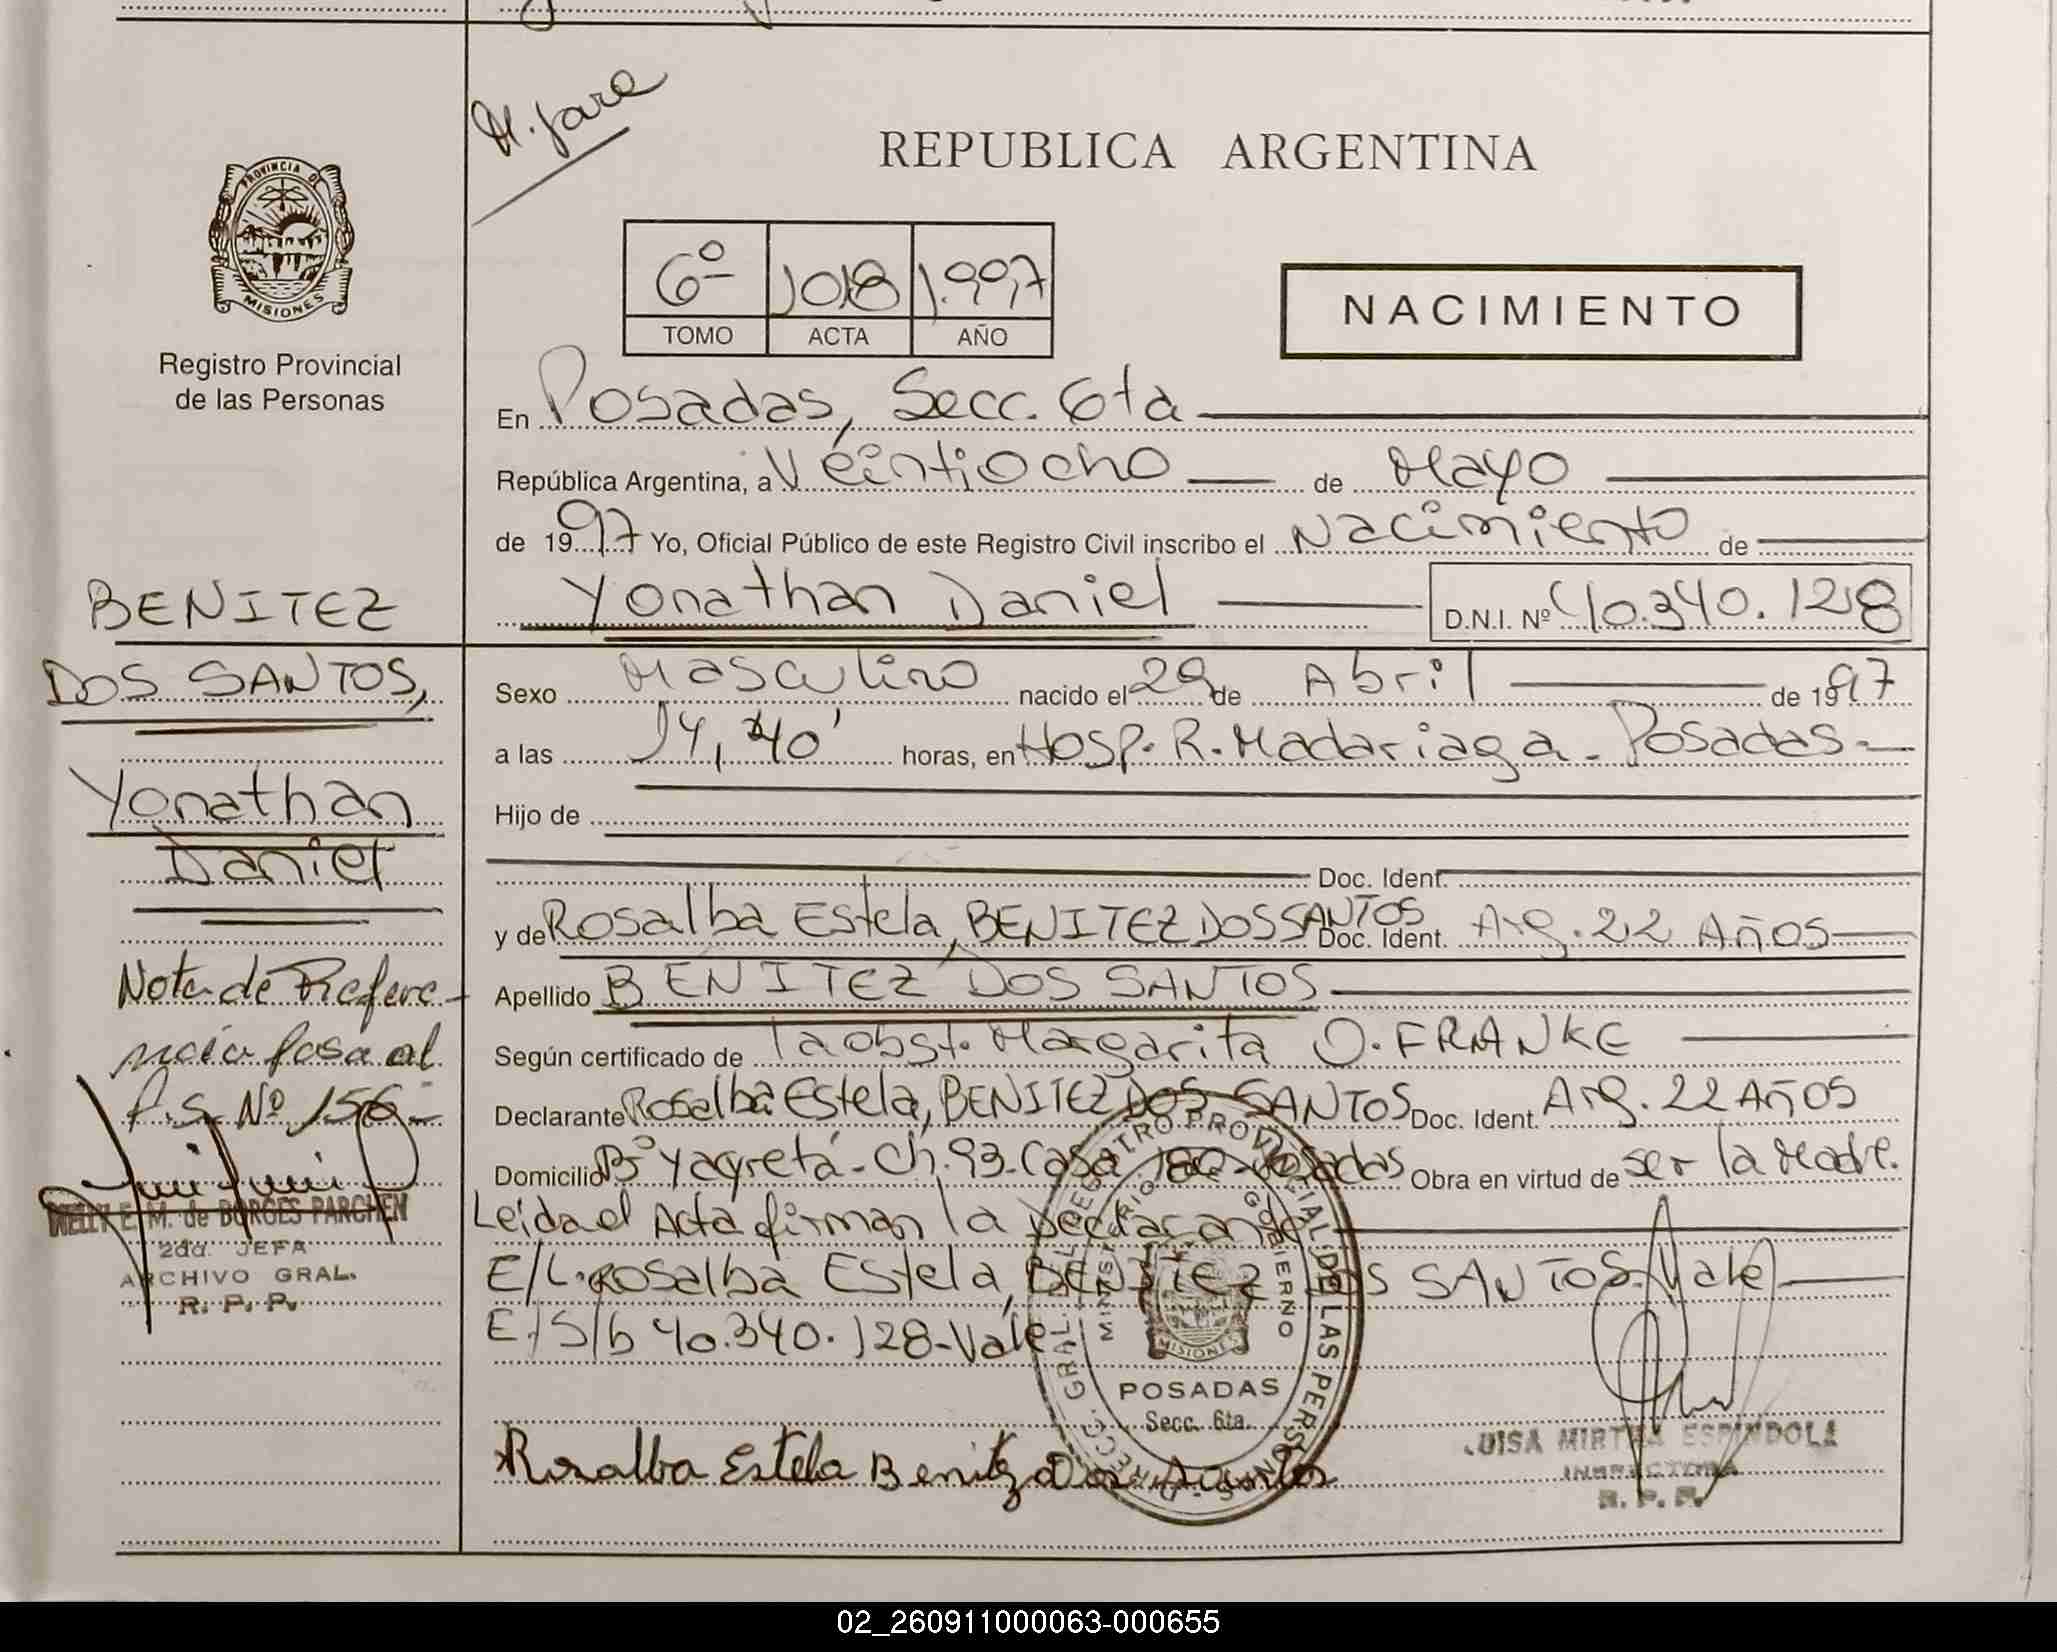 H. Jara
PROVINCIA DE
MISIONES
Registro Provincial
de las Personas
REPUBLICA ARGENTINA
6º 1018 1.997
TOMO ACTA AÑO
NACIMIENTO
En Posadas, Secc. 6ta
República Argentina, a Veintiocho de Mayo
de 1997 Yo, Oficial Público de este Registro Civil inscribo el Nacimiento de
Yonathan Daniel D.N.I. Nº 40.340.128
BENITEZ
DOS SANTOS,
Yonathan
Daniel
Nota de Refere-
ncia pasa al
P.S. Nº 156-
NELLY E. M. de BORGES PARCHEN
2da. JEFA
ARCHIVO GRAL.
R. P. P.
Sexo Masculino nacido el 29 de Abril de 1997
a las 14,40' horas, en Hosp. R. Madariaga - Posadas -
Hijo de
Doc. Ident.
y de Rosalba Estela, BENITEZ DOS SANTOS Doc. Ident. Arg. 22 Años
Apellido BENITEZ DOS SANTOS
Según certificado de la obst. Margarita O. FRANKE
Declarante Rosalba Estela, BENITEZ DOS SANTOS Doc. Ident. Arg. 22 Años
Domicilio Bº Yacyretá - Ch. 93 - Casa - Posadas Obra en virtud de ser la Madre.
Leida el Acta firman la Declarante
E/L. Rosalba Estela, BENITEZ DOS SANTOS. Vale
E/S/b 40.340.128 - Vale -
DIRECC. GRAL. DEL REGISTRO PROVINCIAL DE LAS PERSONAS
MINISTERIO GOBIERNO
MISIONES
POSADAS
Secc. 6ta.
Rosalba Estela Benitez Dos Santos
LUISA MIRTHA ESPINDOLA
INSPECTORA
R. P. P.
02_260911000063-000655